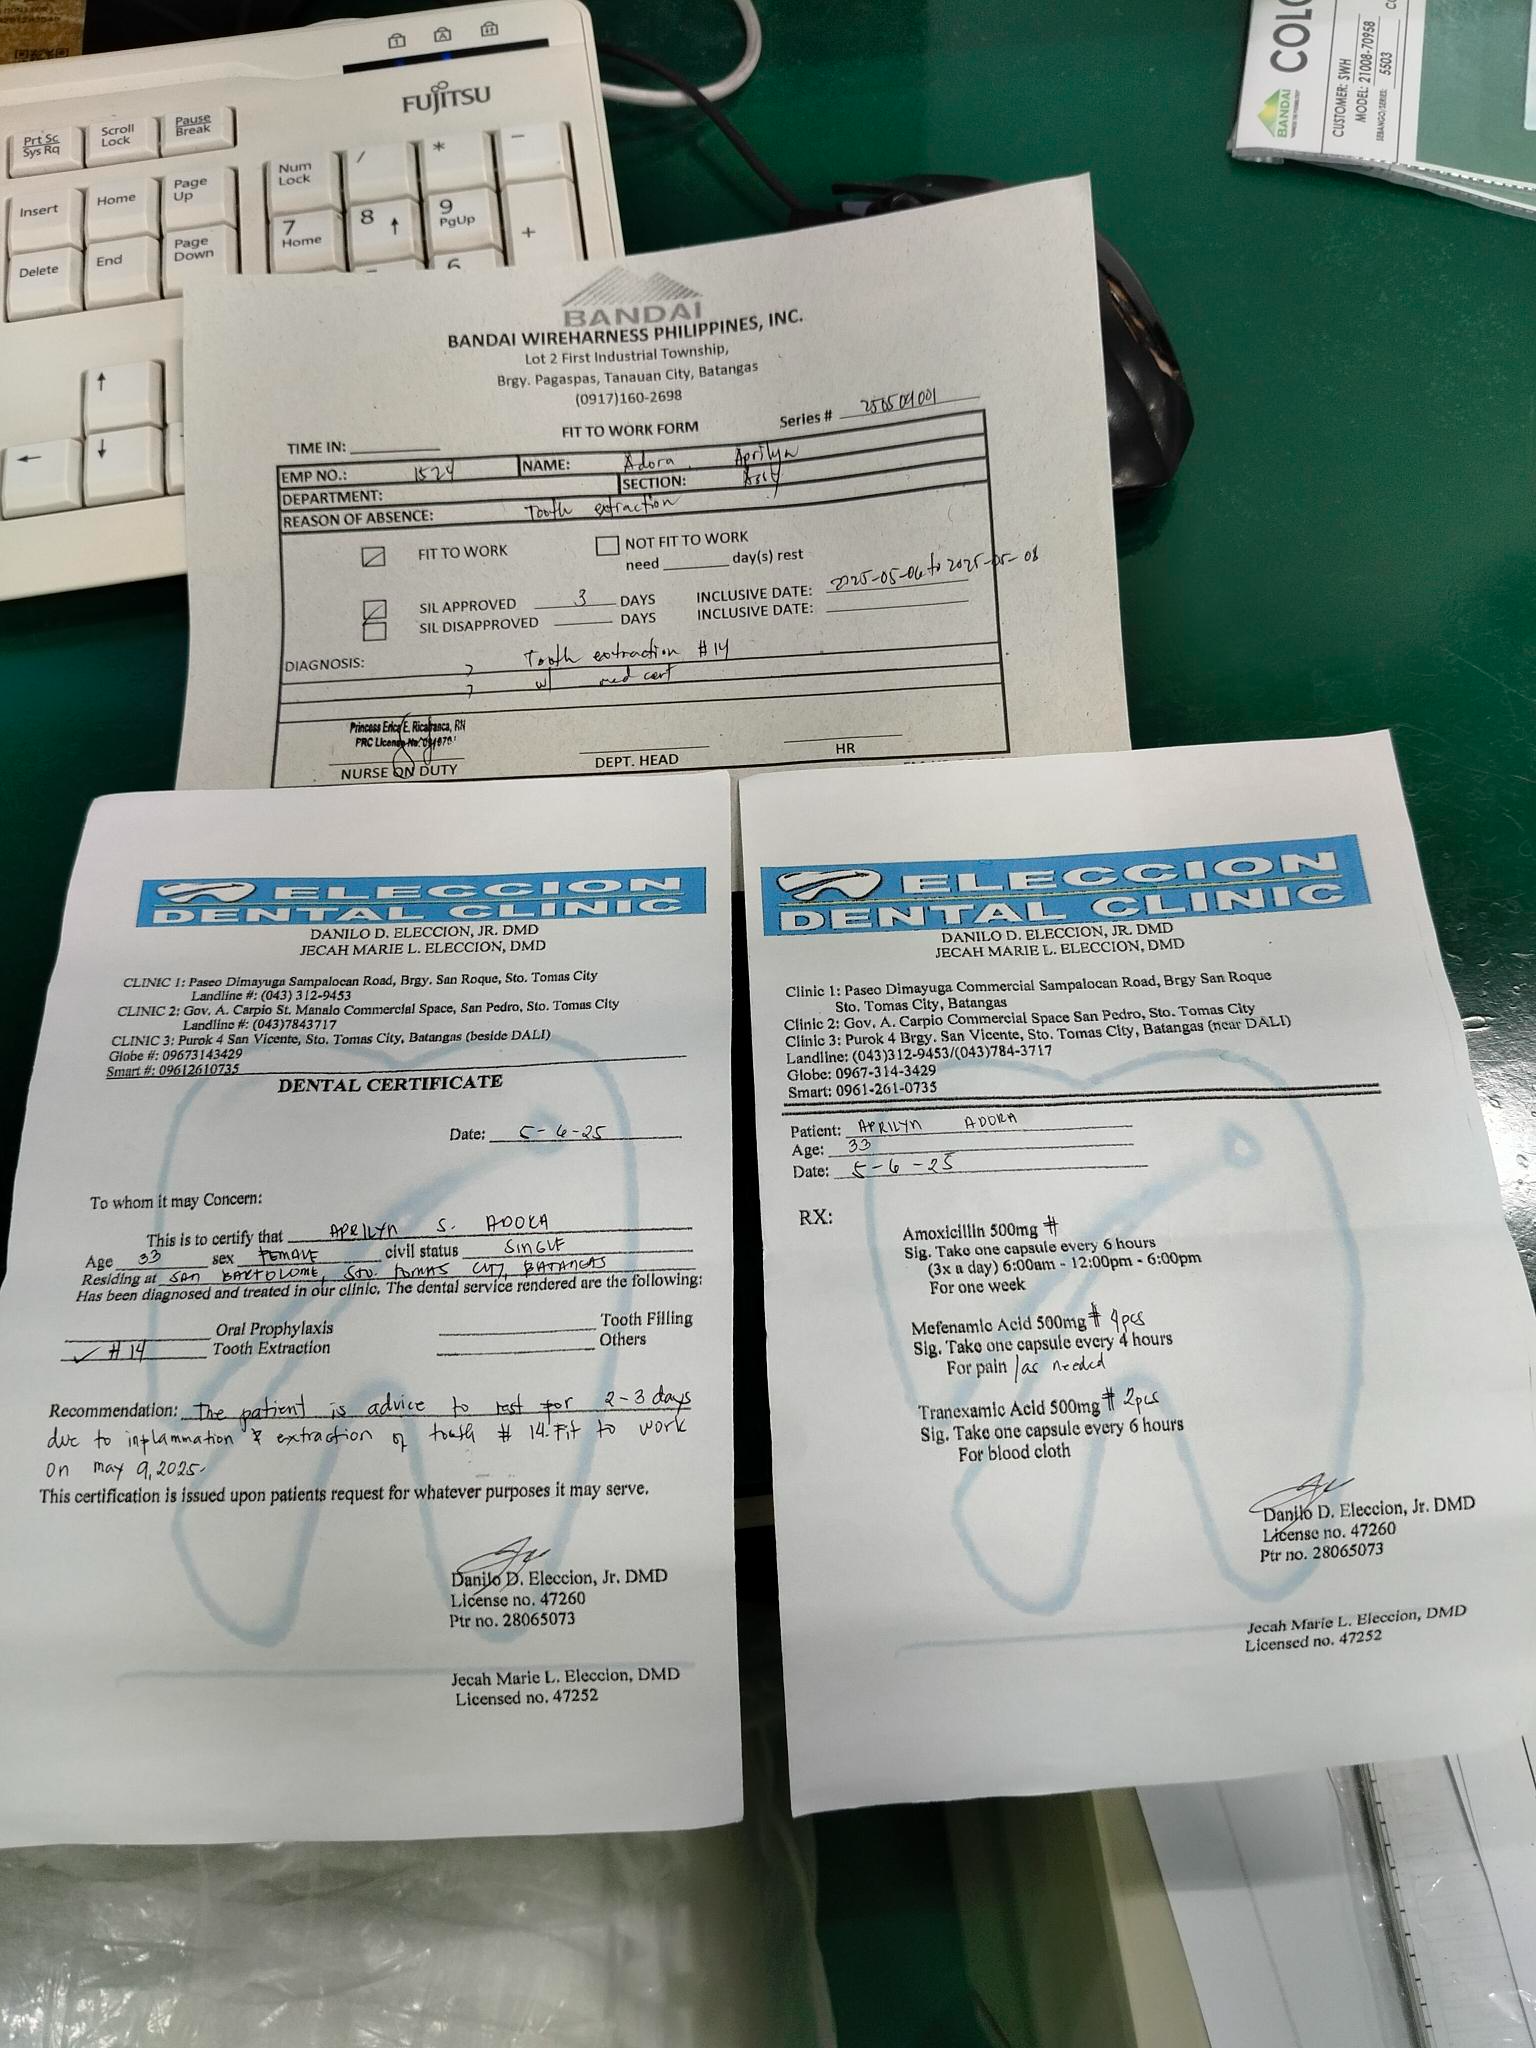 Prt Sc
Sys Rq
Scroll
Lock
Pause
Break
FUJITSU
Insert
Home
Page
Up
Num
Lock
/
*
-
Delete
End
Page
Down
7
Home
8
9
PgUp
+
6
BANDAI
COLO
CUSTOMER: SWH
MODEL: 21008-70958
SEBANGO/SERIES: 5503
BANDAI
BANDAI WIREHARNESS PHILIPPINES, INC.
Lot 2 First Industrial Township,
Brgy. Pagaspas, Tanauan City, Batangas
(0917)160-2698
TIME IN:
FIT TO WORK FORM
Series # 250509001
EMP NO.: 1524 NAME: Adora, Aprilyn
DEPARTMENT: SECTION: Assy
REASON OF ABSENCE: Tooth extraction
FIT TO WORK NOT FIT TO WORK
need day(s) rest
SIL APPROVED 3 DAYS INCLUSIVE DATE: 2025-05-06 to 2025-05-08
SIL DISAPPROVED DAYS INCLUSIVE DATE:
DIAGNOSIS: Tooth extraction #14
w/ med cert
Princess Erica E. Ricafranca, RN
PRC License No.
NURSE ON DUTY DEPT. HEAD HR
ELECCION
DENTAL CLINIC
DANILO D. ELECCION, JR. DMD
JECAH MARIE L. ELECCION, DMD
CLINIC 1: Paseo Dimayuga Sampalocan Road, Brgy. San Roque, Sto. Tomas City
Landline #: (043) 312-9453
CLINIC 2: Gov. A. Carpio St. Manalo Commercial Space, San Pedro, Sto. Tomas City
Landline #: (043)7843717
CLINIC 3: Purok 4 San Vicente, Sto. Tomas City, Batangas (beside DALI)
Globe #: 09673143429
Smart #: 09612610735
DENTAL CERTIFICATE
Date: 5-6-25
To whom it may Concern:
This is to certify that APRILYN S. ADORA
Age 33 sex FEMALE civil status SINGLE
Residing at SAN BARTOLOME, STO. TOMAS CITY, BATANGAS
Has been diagnosed and treated in our clinic. The dental service rendered are the following:
Oral Prophylaxis Tooth Filling
✓ #14 Tooth Extraction Others
Recommendation: The patient is advice to rest for 2-3 days
due to inplammation & extraction of tooth # 14. Fit to work
on may 9, 2025.
This certification is issued upon patients request for whatever purposes it may serve.
Danilo D. Eleccion, Jr. DMD
License no. 47260
Ptr no. 28065073
Jecah Marie L. Eleccion, DMD
Licensed no. 47252
ELECCION
DENTAL CLINIC
DANILO D. ELECCION, JR. DMD
JECAH MARIE L. ELECCION, DMD
Clinic 1: Paseo Dimayuga Commercial Sampalocan Road, Brgy San Roque
Sto. Tomas City, Batangas
Clinic 2: Gov. A. Carpio Commercial Space San Pedro, Sto. Tomas City
Clinic 3: Purok 4 Brgy. San Vicente, Sto. Tomas City, Batangas (near DALI)
Landline: (043)312-9453/(043)784-3717
Globe: 0967-314-3429
Smart: 0961-261-0735
Patient: APRILYN ADORA
Age: 33
Date: 5-6-25
RX:
Amoxicillin 500mg #
Sig. Take one capsule every 6 hours
(3x a day) 6:00am - 12:00pm - 6:00pm
For one week
Mefenamic Acid 500mg # 4pcs
Sig. Take one capsule every 4 hours
For pain /as needed
Tranexamic Acid 500mg # 2pcs
Sig. Take one capsule every 6 hours
For blood cloth
Danilo D. Eleccion, Jr. DMD
License no. 47260
Ptr no. 28065073
Jecah Marie L. Eleccion, DMD
Licensed no. 47252